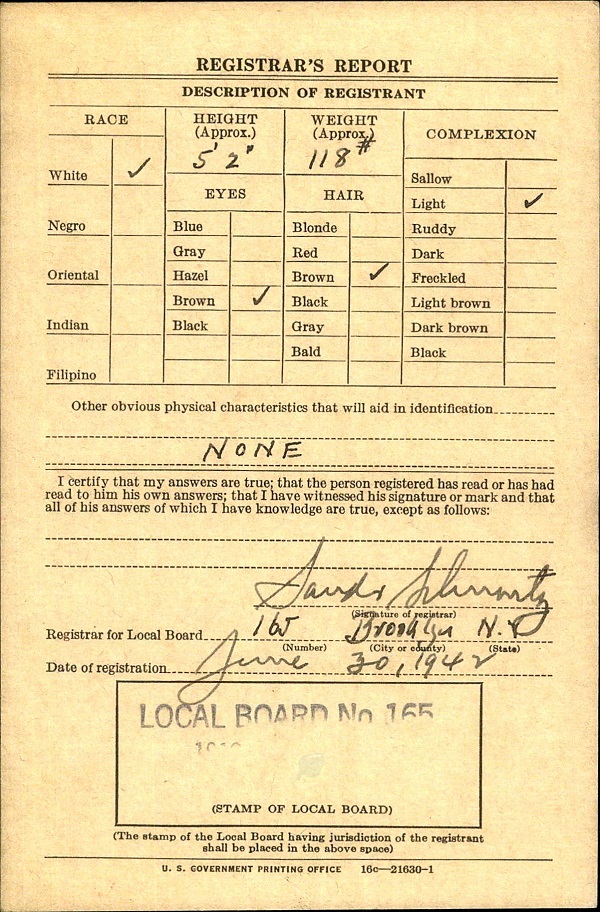 REGISTRAR'S REPORT
DESCRIPTION OF REGISTRANT
RACE
HEIGHT (Approx.)
WEIGHT (Approx.)
COMPLEXION
5' 2"
118#
White ✓
EYES
HAIR
Sallow
Light ✓
Negro
Blue
Blonde
Ruddy
Gray
Red
Dark
Oriental
Hazel
Brown ✓
Freckled
Brown ✓
Black
Light brown
Indian
Black
Gray
Dark brown
Bald
Black
Filipino
Other obvious physical characteristics that will aid in identification
NONE
I certify that my answers are true; that the person registered has read or has had
read to him his own answers; that I have witnessed his signature or mark and that
all of his answers of which I have knowledge are true, except as follows:
(Signature of registrar)
Registrar for Local Board 165 Brooklyn N.Y
(Number) (City or county) (State)
Date of registration June 30, 1942
LOCAL BOARD No 165
(STAMP OF LOCAL BOARD)
(The stamp of the Local Board having jurisdiction of the registrant
shall be placed in the above space)
U. S. GOVERNMENT PRINTING OFFICE 16c—21630-1